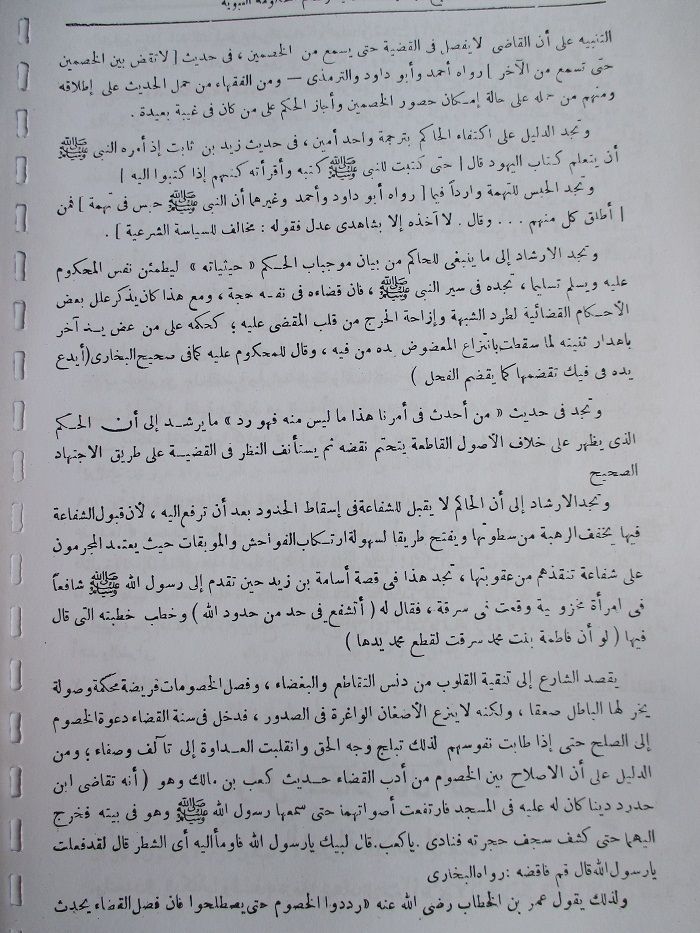 التنبيه على أن القاضى لايفصل فى القضية حتى يسمع من الخصمين ، فى حديث [ لاتقض بين الخصمين
حتى تسمع من الآخر ] رواه أحمد وأبو داود والترمذى — ومن الفقهاء من حمل الحديث على إطلاقه
ومنهم من حمله على حالة إمكان حضور الخصمين وأجاز الحكم على من كان فى غيبة بعيدة .
وتجد الدليل على اكتفاء الحاكم بترجمة واحد أمين ، فى حديث زيد بن ثابت إذ أمره النبى ﷺ
أن يتعلم كتاب اليهود قال [ حتى كتبت للنبى ﷺ كتبه وأقرأته كتبهم إذا كتبوا اليه ]
وتجد الحبس للتهمة وارداً فيما [ رواه أبو داود وأحمد وغيرها أن النبى ﷺ حبس فى تهمة ] فمن
[ أطلق كل منهم . . . وقال . لا آخذه إلا بشاهدى عدل فقوله : مخالف للسياسة الشرعية ] .
وتجد الارشاد إلى ما ينبغى للحاكم من بيان موجبات الحكم « حيثياته » ليطمئن نفس المحكوم
عليه ويسلم تسليما ، تجده فى سير النبى ﷺ ، فان قضاءه فى نفسه حجة ، ومع هذا كان يذكر علل بعض
الأحكام القضائية لطرد الشبهة وإزاحة الحرج من قلب المقضى عليه ؛ كحكمه على من عض يد آخر
باهدار ثنيته لما سقطت بانتزاع المعضوض يده من فيه ، وقال للمحكوم عليه كما فى صحيح البخارى (أيدع
يده فى فيك تقضمها كما يقضم الفحل )
وتجد فى حديث « من أحدث فى أمرنا هذا ما ليس منه فهو رد » ما يرشد إلى أن الحكم
الذى يظهر على خلاف الأصول القاطعة يتحتم نقضه ثم يستأنف النظر فى القضية على طريق الاجتهاد
الصحيح
وتجد الارشاد إلى أن الحاكم لا يقبل للشفاعة فى إسقاط الحدود بعد أن ترفع اليه ، لأن قبول الشفاعة
فيها يخفف الرهبة من سطوتها ويفتح طريقا لسهولة ارتكاب الفواحش والموبقات حيث يعتمد المجرمون
على شفاعة تنقذهم من عقوبتها ، تجد هذا فى قصة أسامة بن زيد حين تقدم إلى رسول الله ﷺ شافعاً
فى امرأة مخزومية وقعت فى سرقة ، فقال له ( أتشفع فى حد من حدود الله ) وخطب خطبته التى قال
فيها ( لو أن فاطمة بنت محمد سرقت لقطع محمد يدها )
يقصد الشارع إلى تنقية القلوب من دنس التقاطع والبغضاء ، وفصل الخصومات فريضة محكمة وصولة
يخر لها الباطل صعقا ، ولكنه لا ينزع الأضغان الواغرة فى الصدور ، فدخل فى سنة القضاء دعوة الخصوم
إلى الصلح حتى إذا طابت نفوسهم لذلك تبلج وجه الحق وانقلبت العداوة إلى تآلف وصفاء ؛ ومن
الدليل على أن الاصلاح بين الخصوم من أدب القضاء حديث كعب بن مالك وهو ( أنه تقاضى ابن
حدرد دينا كان له عليه فى المسجد فارتفعت أصواتهما حتى سمعها رسول الله ﷺ وهو فى بيته فخرج
اليهما حتى كشف سجف حجرته فنادى . ياكعب . قال لبيك يارسول الله فاومأ اليه أى الشطر قال لقد فعلت
يارسول الله قال قم فاقضه : رواه البخارى
ولذلك يقول عمر بن الخطاب رضى الله عنه « رددوا الخصوم حتى يصطلحوا فان فصل القضاء يحدث